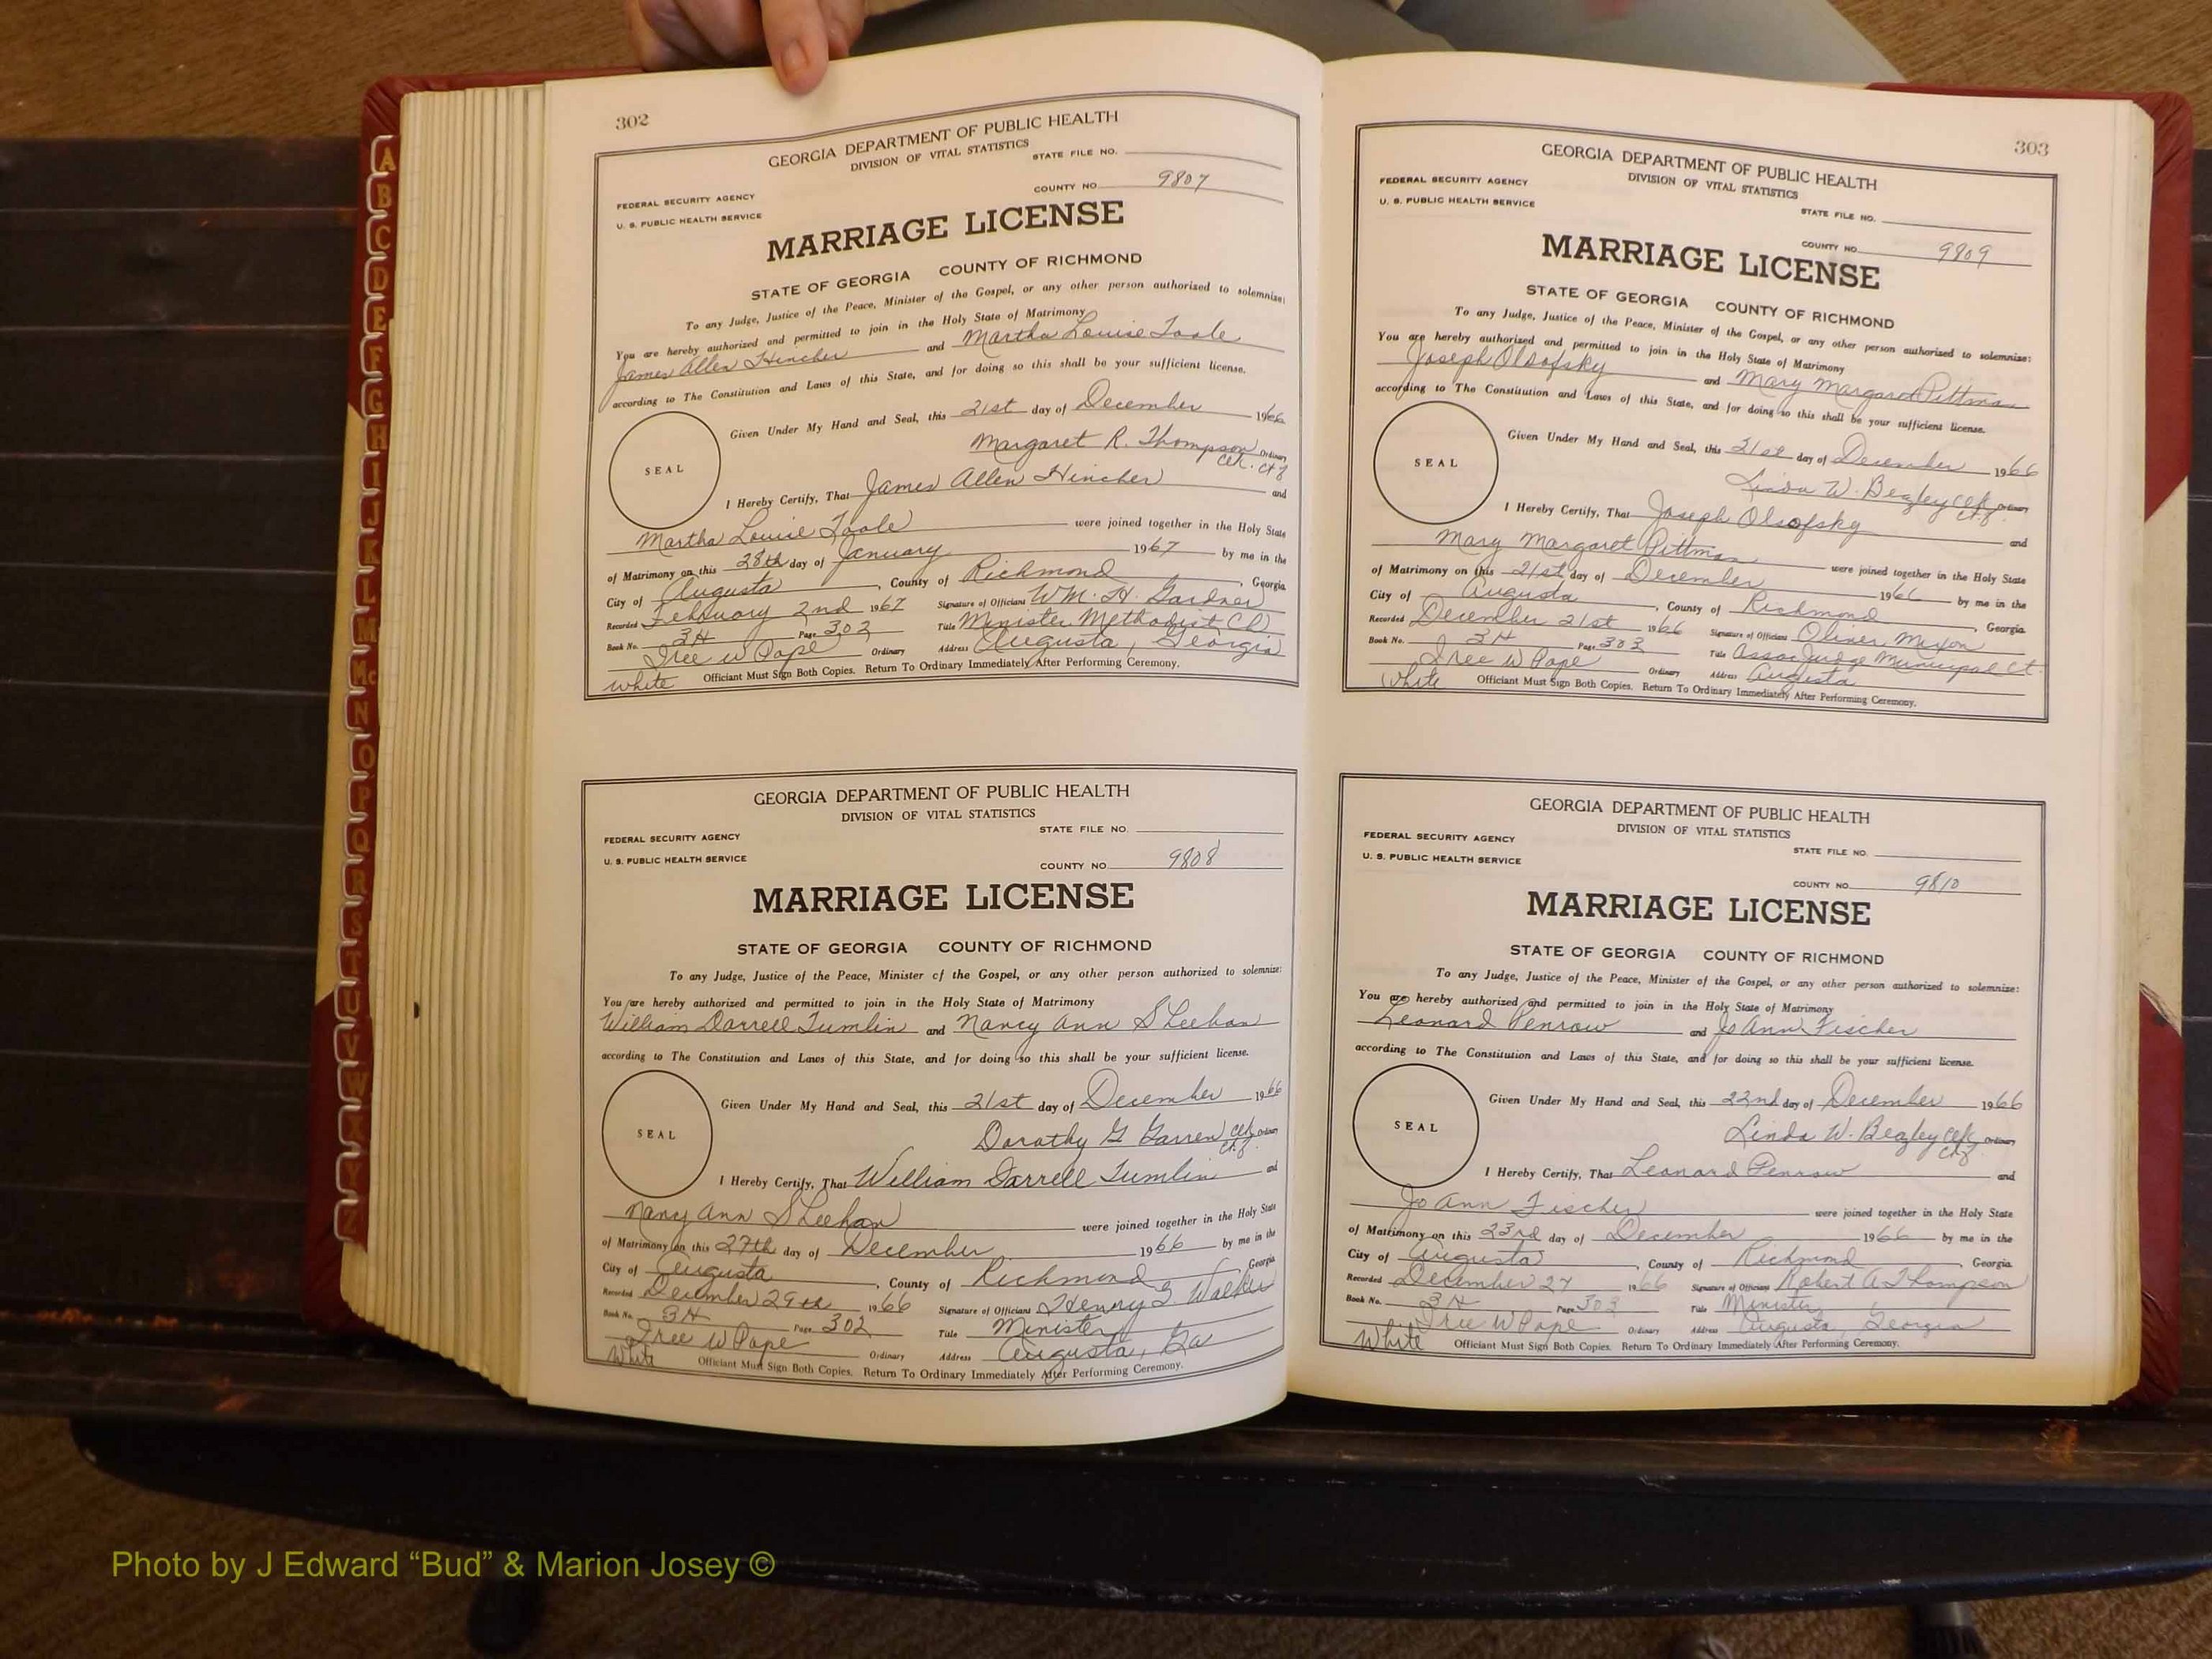 302
GEORGIA DEPARTMENT OF PUBLIC HEALTH
DIVISION OF VITAL STATISTICS
STATE FILE NO.
FEDERAL SECURITY AGENCY
U. S. PUBLIC HEALTH SERVICE
COUNTY NO. 9807
MARRIAGE LICENSE
STATE OF GEORGIA COUNTY OF RICHMOND
To any Judge, Justice of the Peace, Minister of the Gospel, or any other person authorized to solemnize:
You are hereby authorized and permitted to join in the Holy State of Matrimony
James Allen Hincher and Martha Louise Toole
according to The Constitution and Laws of this State, and for doing so this shall be your sufficient license.
Given Under My Hand and Seal, this 21st day of December 1966
SEAL
Margaret R. Thompson Ordinary
Clk. Ct of
I Hereby Certify, That James Allen Hincher and
Martha Louise Toole were joined together in the Holy State
of Matrimony on this 28th day of January 1967 by me in the
City of Augusta, County of Richmond, Georgia
Recorded February 2nd 1967 Signature of Officiant WM. H. Gardner
Book No. 3H Page 302 Title Minister Methodist Ch
Iree W Pope Ordinary Address Augusta, Georgia
White Officiant Must Sign Both Copies. Return To Ordinary Immediately After Performing Ceremony.
GEORGIA DEPARTMENT OF PUBLIC HEALTH
DIVISION OF VITAL STATISTICS
STATE FILE NO.
FEDERAL SECURITY AGENCY
U. S. PUBLIC HEALTH SERVICE
COUNTY NO. 9808
MARRIAGE LICENSE
STATE OF GEORGIA COUNTY OF RICHMOND
To any Judge, Justice of the Peace, Minister of the Gospel, or any other person authorized to solemnize:
You are hereby authorized and permitted to join in the Holy State of Matrimony
William Darrell Tumlin and Nancy Ann Sheehan
according to The Constitution and Laws of this State, and for doing so this shall be your sufficient license.
Given Under My Hand and Seal, this 21st day of December 1966
SEAL
Dorothy G Garren Clk Ordinary
Ct of
I Hereby Certify, That William Darrell Tumlin and
Nancy Ann Sheehan were joined together in the Holy State
of Matrimony on this 27th day of December 1966 by me in the
City of Augusta, County of Richmond, Georgia
Recorded December 29th 1966 Signature of Officiant Henry G Walker
Book No. 3H Page 302 Title Minister
Iree W Pope Ordinary Address Augusta, Ga
White Officiant Must Sign Both Copies. Return To Ordinary Immediately After Performing Ceremony.
303
GEORGIA DEPARTMENT OF PUBLIC HEALTH
DIVISION OF VITAL STATISTICS
FEDERAL SECURITY AGENCY
U. S. PUBLIC HEALTH SERVICE
STATE FILE NO.
COUNTY NO. 9809
MARRIAGE LICENSE
STATE OF GEORGIA COUNTY OF RICHMOND
To any Judge, Justice of the Peace, Minister of the Gospel, or any other person authorized to solemnize:
You are hereby authorized and permitted to join in the Holy State of Matrimony
Joseph Olsofsky and Mary Margaret Pittman
according to The Constitution and Laws of this State, and for doing so this shall be your sufficient license.
Given Under My Hand and Seal, this 21st day of December 1966
SEAL
Linda W. Beazley Clk Ordinary
Ct of
I Hereby Certify, That Joseph Olsofsky and
Mary Margaret Pittman were joined together in the Holy State
of Matrimony on this 21st day of December 1966 by me in the
City of Augusta, County of Richmond, Georgia
Recorded December 21st 1966 Signature of Officiant Oliver Mixon
Book No. 3H Page 303 Title Assoc Judge Municipal Ct.
Iree W Pope Ordinary Address Augusta
White Officiant Must Sign Both Copies. Return To Ordinary Immediately After Performing Ceremony.
GEORGIA DEPARTMENT OF PUBLIC HEALTH
DIVISION OF VITAL STATISTICS
FEDERAL SECURITY AGENCY
U. S. PUBLIC HEALTH SERVICE
STATE FILE NO.
COUNTY NO. 9810
MARRIAGE LICENSE
STATE OF GEORGIA COUNTY OF RICHMOND
To any Judge, Justice of the Peace, Minister of the Gospel, or any other person authorized to solemnize:
You are hereby authorized and permitted to join in the Holy State of Matrimony
Leonard Penrow and Jo Ann Fischer
according to The Constitution and Laws of this State, and for doing so this shall be your sufficient license.
Given Under My Hand and Seal, this 22nd day of December 1966
SEAL
Linda W. Beazley Clk Ordinary
Ct of
I Hereby Certify, That Leonard Penrow and
Jo Ann Fischer were joined together in the Holy State
of Matrimony on this 23rd day of December 1966 by me in the
City of Augusta, County of Richmond, Georgia
Recorded December 27 1966 Signature of Officiant Robert A Thompson
Book No. 3H Page 303 Title Minister
Iree W Pope Ordinary Address Augusta, Georgia
White Officiant Must Sign Both Copies. Return To Ordinary Immediately After Performing Ceremony.
A
B
C
D
E
F
G
H
I
J
K
L
M
Mc
N
O
P
Q
R
S
T
U
V
W
X
Y
Z
Photo by J Edward “Bud” & Marion Josey ©